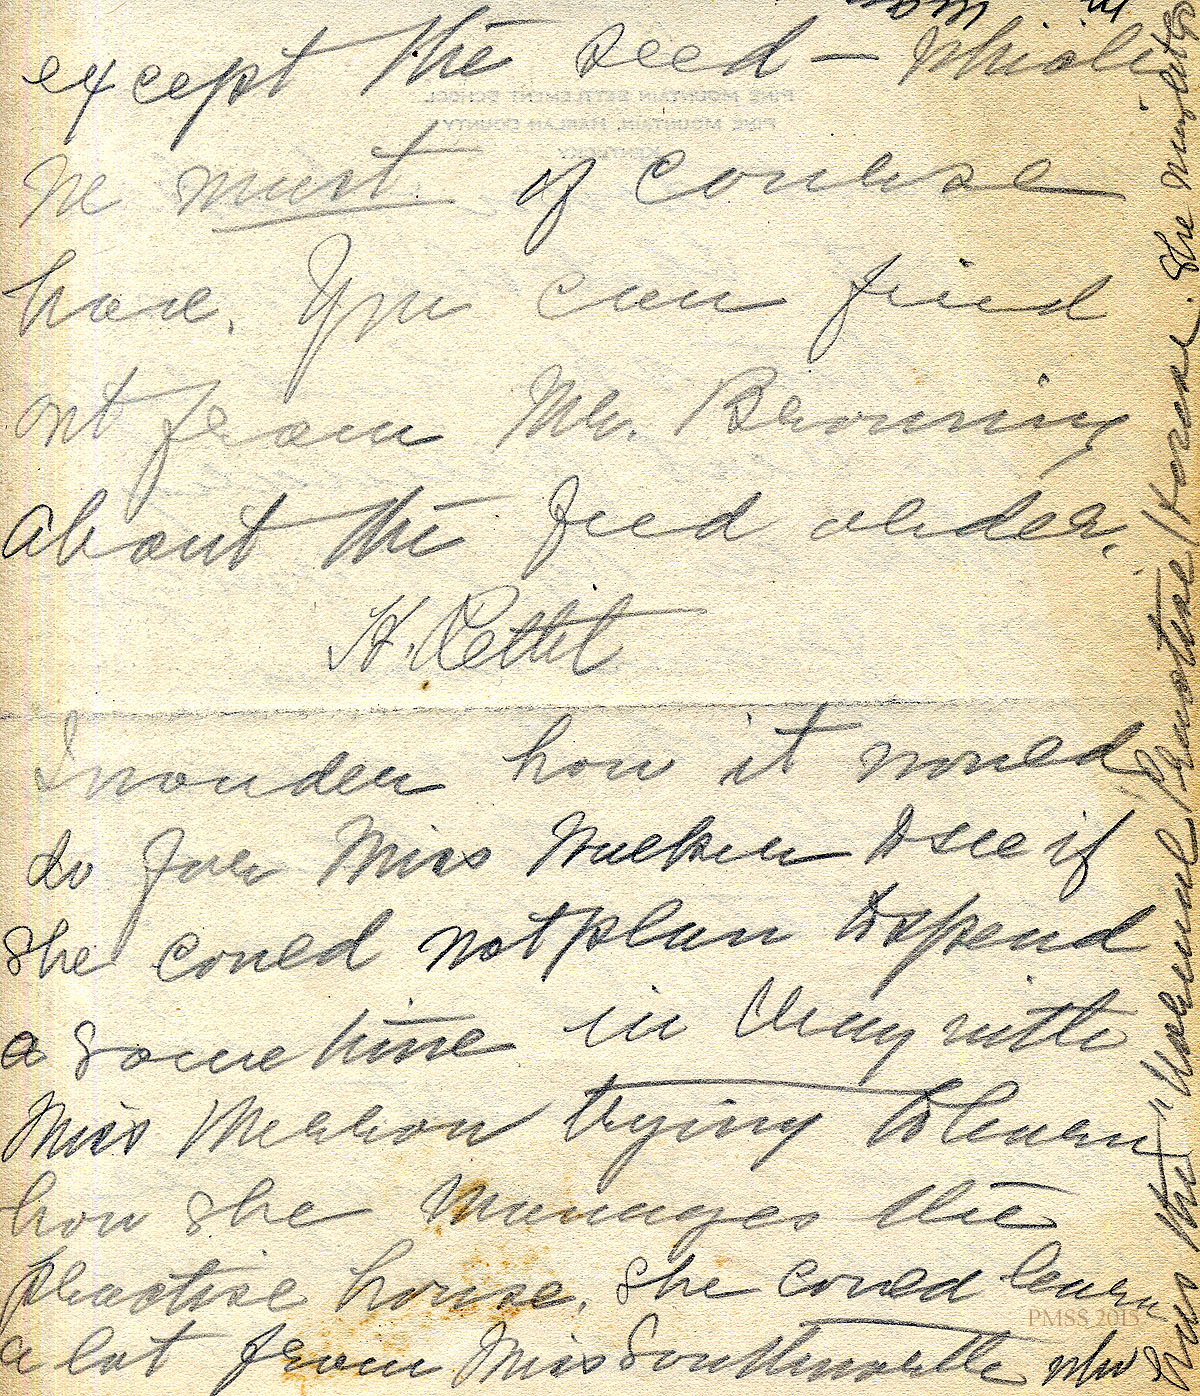 except the seed — which
we must of course
have. You can find
out from Mr. Browning
about the feed order.
H. Pettit
I wonder how it would
do for Miss to see if
she could not plan to spend
a some time in May with
Miss trying to learn
how she manages the
practise house. She could learn
a lot from Miss Southworth who
runs the " Practise House. She might
PINE MOUNTAIN SETTLEMENT SCHOOL
PINE MOUNTAIN, HARLAN COUNTY
KENTUCKY
PMSS 2013